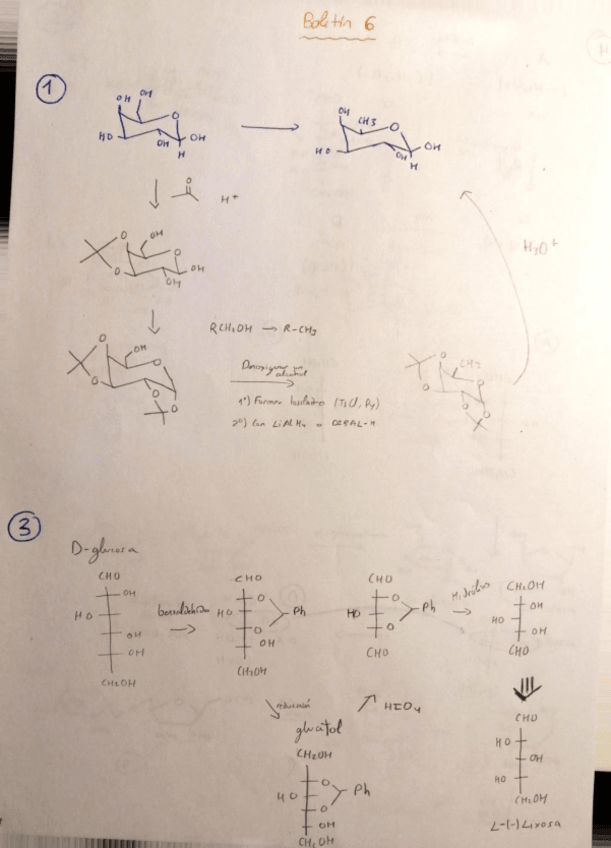 Boletín 6
1
OH OH
O
HO OH OH
H
OH CH3
O
HO OH OH
H
O H+
O OH
O
O OH
OH
H3O+
O OH
O
O
O
O
RCH2OH → R-CH3
Desoxigenar un
alcohol
1º) Formar tosilato (TsCl, Py)
2º) Con LiAlH4 o DIBAL-H
O CH3
O
O
O
O
3
D-glucosa
CHO
OH
HO
OH
OH
CH2OH
CHO
O
HO Ph
O
OH
CH2OH
CHO
O
HO Ph
O
CHO
Hidrólisis
CH2OH
OH
HO
OH
CHO
reducción
HIO4
CH2OH
O
HO Ph
O
OH
CH2OH
CHO
HO
OH
HO
CH2OH
L-(-) Lixosa